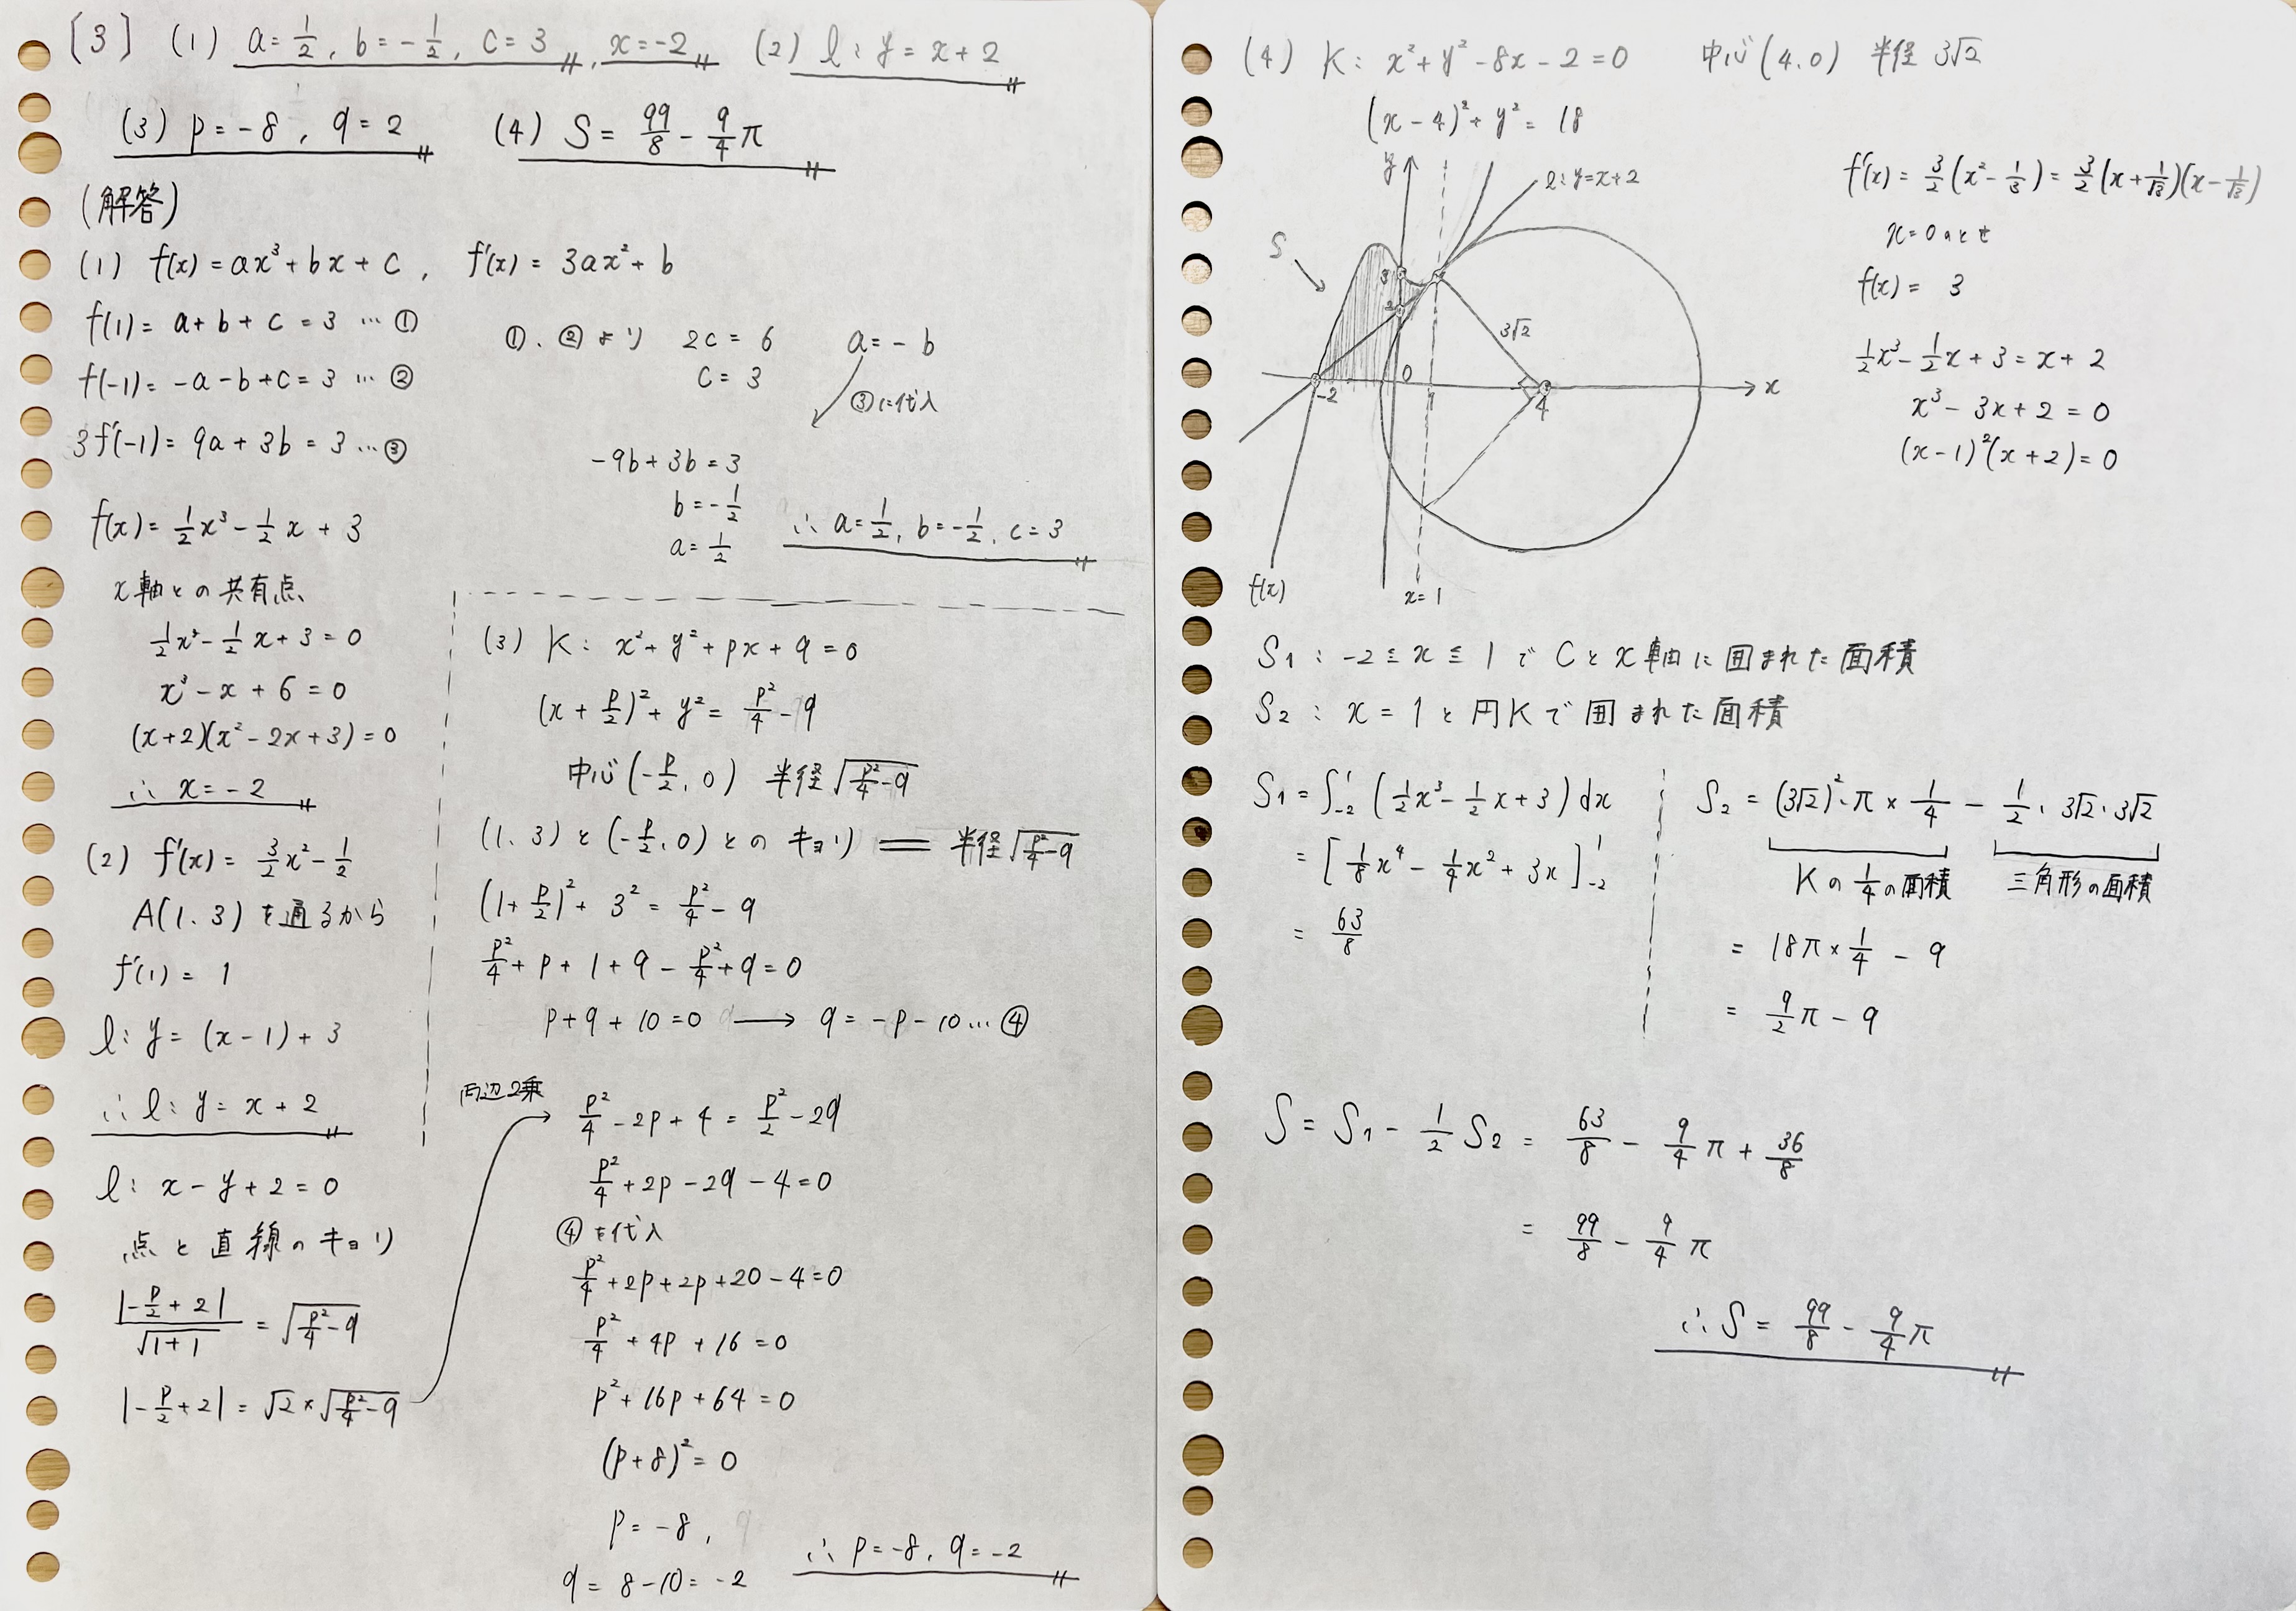 [3] (1) a=1/2, b=-1/2, c=3, x=-2 (2) l: y=x+2
(3) p=-8, q=2 (4) S=99/8-9/4π
(解答)
(1) f(x)=ax³+bx+c, f'(x)=3ax²+b
f(1)=a+b+c=3…①
f(-1)=-a-b+c=3…②
3f'(-1)=9a+3b=3…③
①、②より 2c=6 a=-b
c=3
③に代入
-9b+3b=3
b=-1/2
a=1/2
∴a=1/2, b=-1/2, c=3
f(x)=1/2x³-1/2x+3
x軸との共有点
1/2x³-1/2x+3=0
x³-x+6=0
(x+2)(x²-2x+3)=0
∴x=-2
(2) f'(x)=3/2x²-1/2
A(1,3)を通るから
f'(1)=1
l: y=(x-1)+3
∴l: y=x+2
l: x-y+2=0
点と直線のキョリ
|-p/2+2|/√(1+1)=√(p²/4-q)
|-p/2+2|=√2×√(p²/4-q)
(3) K: x²+y²+px+q=0
(x+p/2)²+y²=p²/4-q
中心(-p/2,0) 半径√(p²/4-q)
(1,3)と(-p/2,0)とのキョリ = 半径√(p²/4-q)
(1+p/2)²+3²=p²/4-q
p²/4+p+1+9-p²/4+q=0
p+q+10=0 → q=-p-10…④
両辺2乗
p²/4-2p+4=p²/2-2q
p²/4+2p-2q-4=0
④を代入
p²/4+2p+2p+20-4=0
p²/4+4p+16=0
p²+16p+64=0
(p+8)²=0
p=-8,
q=8-10=-2
∴p=-8, q=-2
(4) K: x²+y²-8x-2=0 中心(4,0) 半径3√2
(x-4)²+y²=18
y
l: y=x+2
S
3
2
3√2
-2
0
1
4
x
f(x)
x=1
f'(x)=3/2(x²-1/3)=3/2(x+1/√3)(x-1/√3)
x=0のとき
f(x)=3
1/2x³-1/2x+3=x+2
x³-3x+2=0
(x-1)²(x+2)=0
S₁: -2≦x≦1でCとx軸に囲まれた面積
S₂: x=1と円Kで囲まれた面積
S₁=∫₋₂¹(1/2x³-1/2x+3)dx
=[1/8x⁴-1/4x²+3x]₋₂¹
=63/8
S₂=(3√2)²·π×1/4-1/2·3√2·3√2
Kの1/4の面積 三角形の面積
=18π×1/4-9
=9/2π-9
S=S₁-1/2S₂=63/8-9/4π+36/8
=99/8-9/4π
∴S=99/8-9/4π